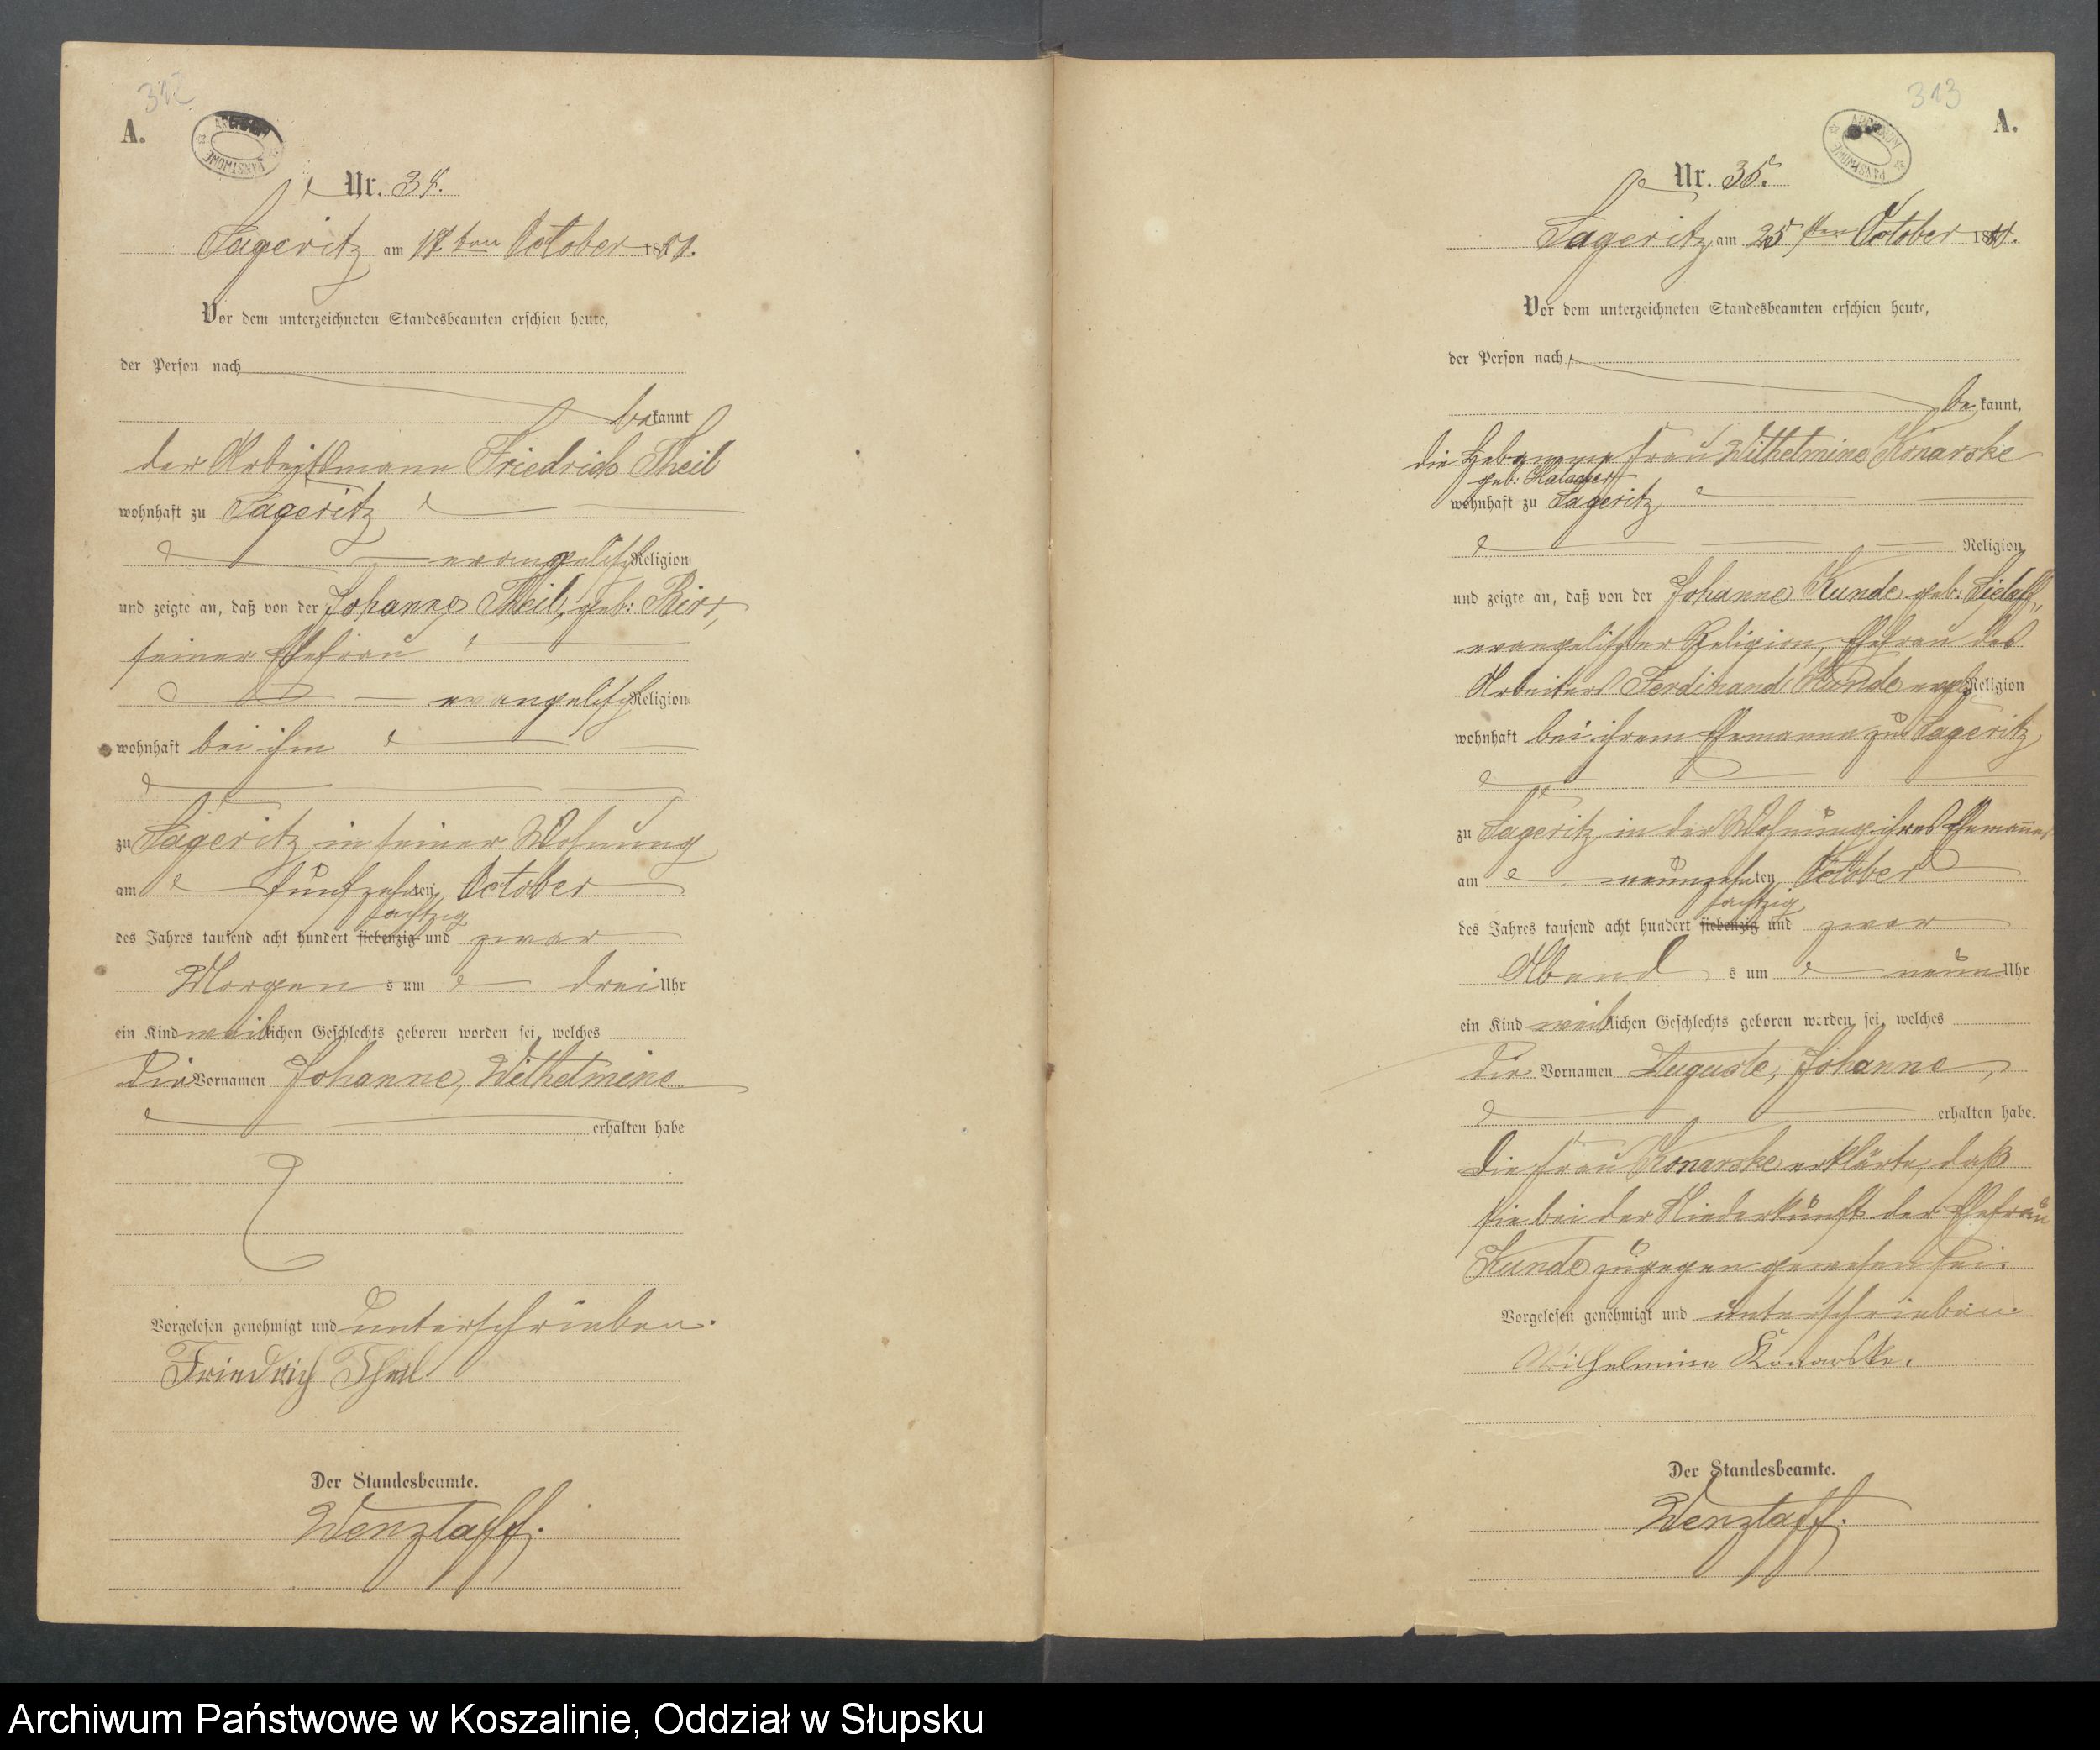 312
A.
ARCHIWUM PAŃSTWOWE
Nr. 34.
Sageritz am 17ten October 1881.
Vor dem unterzeichneten Standesbeamten erschien heute,
der Person nach
bekannt
der Arbeitsmann Friedrich Theil
wohnhaft zu Sageritz
evangelisch Religion
und zeigte an, daß von der Johanne Theil, geb:
seiner Ehefrau
evangelisch Religion
wohnhaft bei ihm
zu Sageritz in seiner Wohnung
am fünfzehnten October
achtzig
des Jahres tausend acht hundert siebenzig und zwar
Morgens um drei Uhr
ein Kind weiblichen Geschlechts geboren worden sei, welches
die Vornamen Johanne, Wilhelmine
erhalten habe
Vorgelesen genehmigt und unterschrieben.
Friedrich Theil
Der Standesbeamte.
Wenzlaff.
313
A.
ARCHIWUM PAŃSTWOWE
Nr. 35.
Sageritz am 25sten October 1881.
Vor dem unterzeichneten Standesbeamten erschien heute,
der Person nach
bekannt,
die Hebamme Frau Wilhelmine Konarske
geb:
wohnhaft zu Sageritz
Religion
und zeigte an, daß von der Johanne Kunde geb:
evangelischer Religion, Ehefrau des
Arbeiters Ferdinand Kunde evgl. Religion
wohnhaft bei ihrem Ehemanne zu Sageritz
zu Sageritz in der Wohnung ihres Ehemannes
am neunzehnten October
achtzig
des Jahres tausend acht hundert siebenzig und zwar
Abends um neun Uhr
ein Kind weiblichen Geschlechts geboren worden sei, welches
die Vornamen Auguste, Johanne,
erhalten habe.
Die Frau Konarske erklärte, daß
sie bei der Niederkunft der Ehefrau
Kunde zugegen gewesen sei.
Vorgelesen genehmigt und unterschrieben.
Wilhelmine Konarske.
Der Standesbeamte.
Wenzlaff.
Archiwum Państwowe w Koszalinie, Oddział w Słupsku